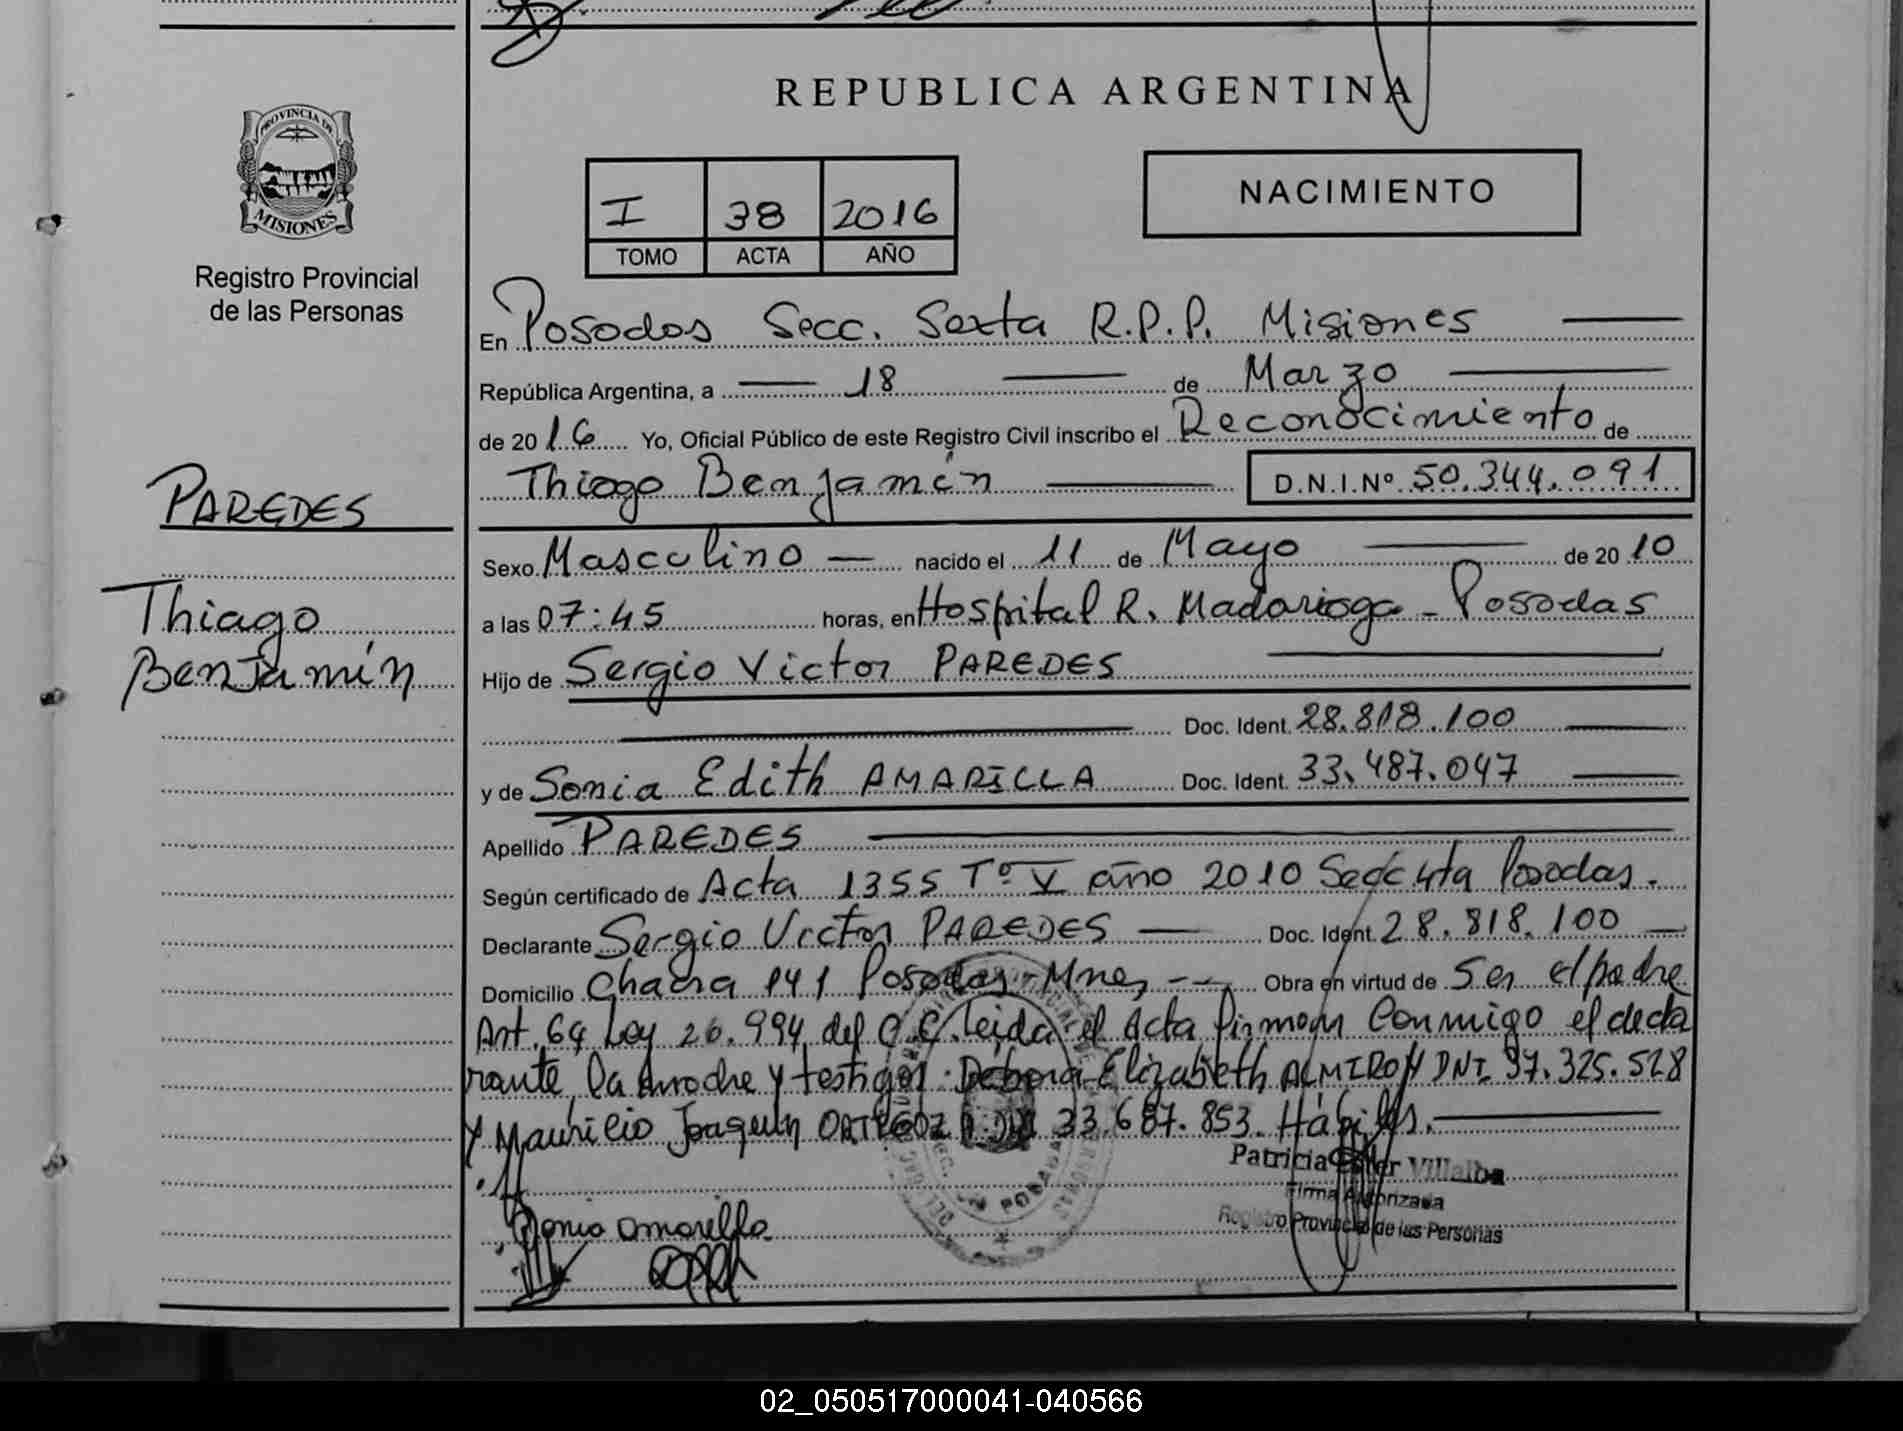 REPUBLICA ARGENTINA
PROVINCIA DE
MISIONES
Registro Provincial
de las Personas
NACIMIENTO
I 38 2016
TOMO ACTA AÑO
En Posadas Secc. Sexta R.P.P. Misiones
República Argentina, a 18 de Marzo
de 2016 Yo, Oficial Público de este Registro Civil inscribo el Reconocimiento de
Thiago Benjamín D.N.I.Nº 50.344.091
PAREDES
Thiago
Benjamín
Sexo Masculino nacido el 11 de Mayo de 2010
a las 07:45 horas, en Hospital R. Madariaga - Posadas
Hijo de Sergio Victor PAREDES
Doc. Ident. 28.818.100
y de Sonia Edith AMARILLA Doc. Ident. 33.487.047
Apellido PAREDES
Según certificado de Acta 1355 Tº V año 2010 Secc 4ta Posadas.
Declarante Sergio Victor PAREDES Doc. Ident. 28.818.100
Domicilio Chacra 141 Posadas - Mnes Obra en virtud de Ser el padre
Art. 64 Ley 26.994 del C.C. leida el Acta firman Conmigo el decla
rante, la madre y testigos Débora Elizabeth ALMIRON DNI 37.325.528
Y Mauricio Joaquin ORTEGOZA DNI 33.687.853. Hábiles.
Patricia Ester Villalba
Firma Autorizada
Registro Provincial de las Personas
Sonia amarilla
02_050517000041-040566